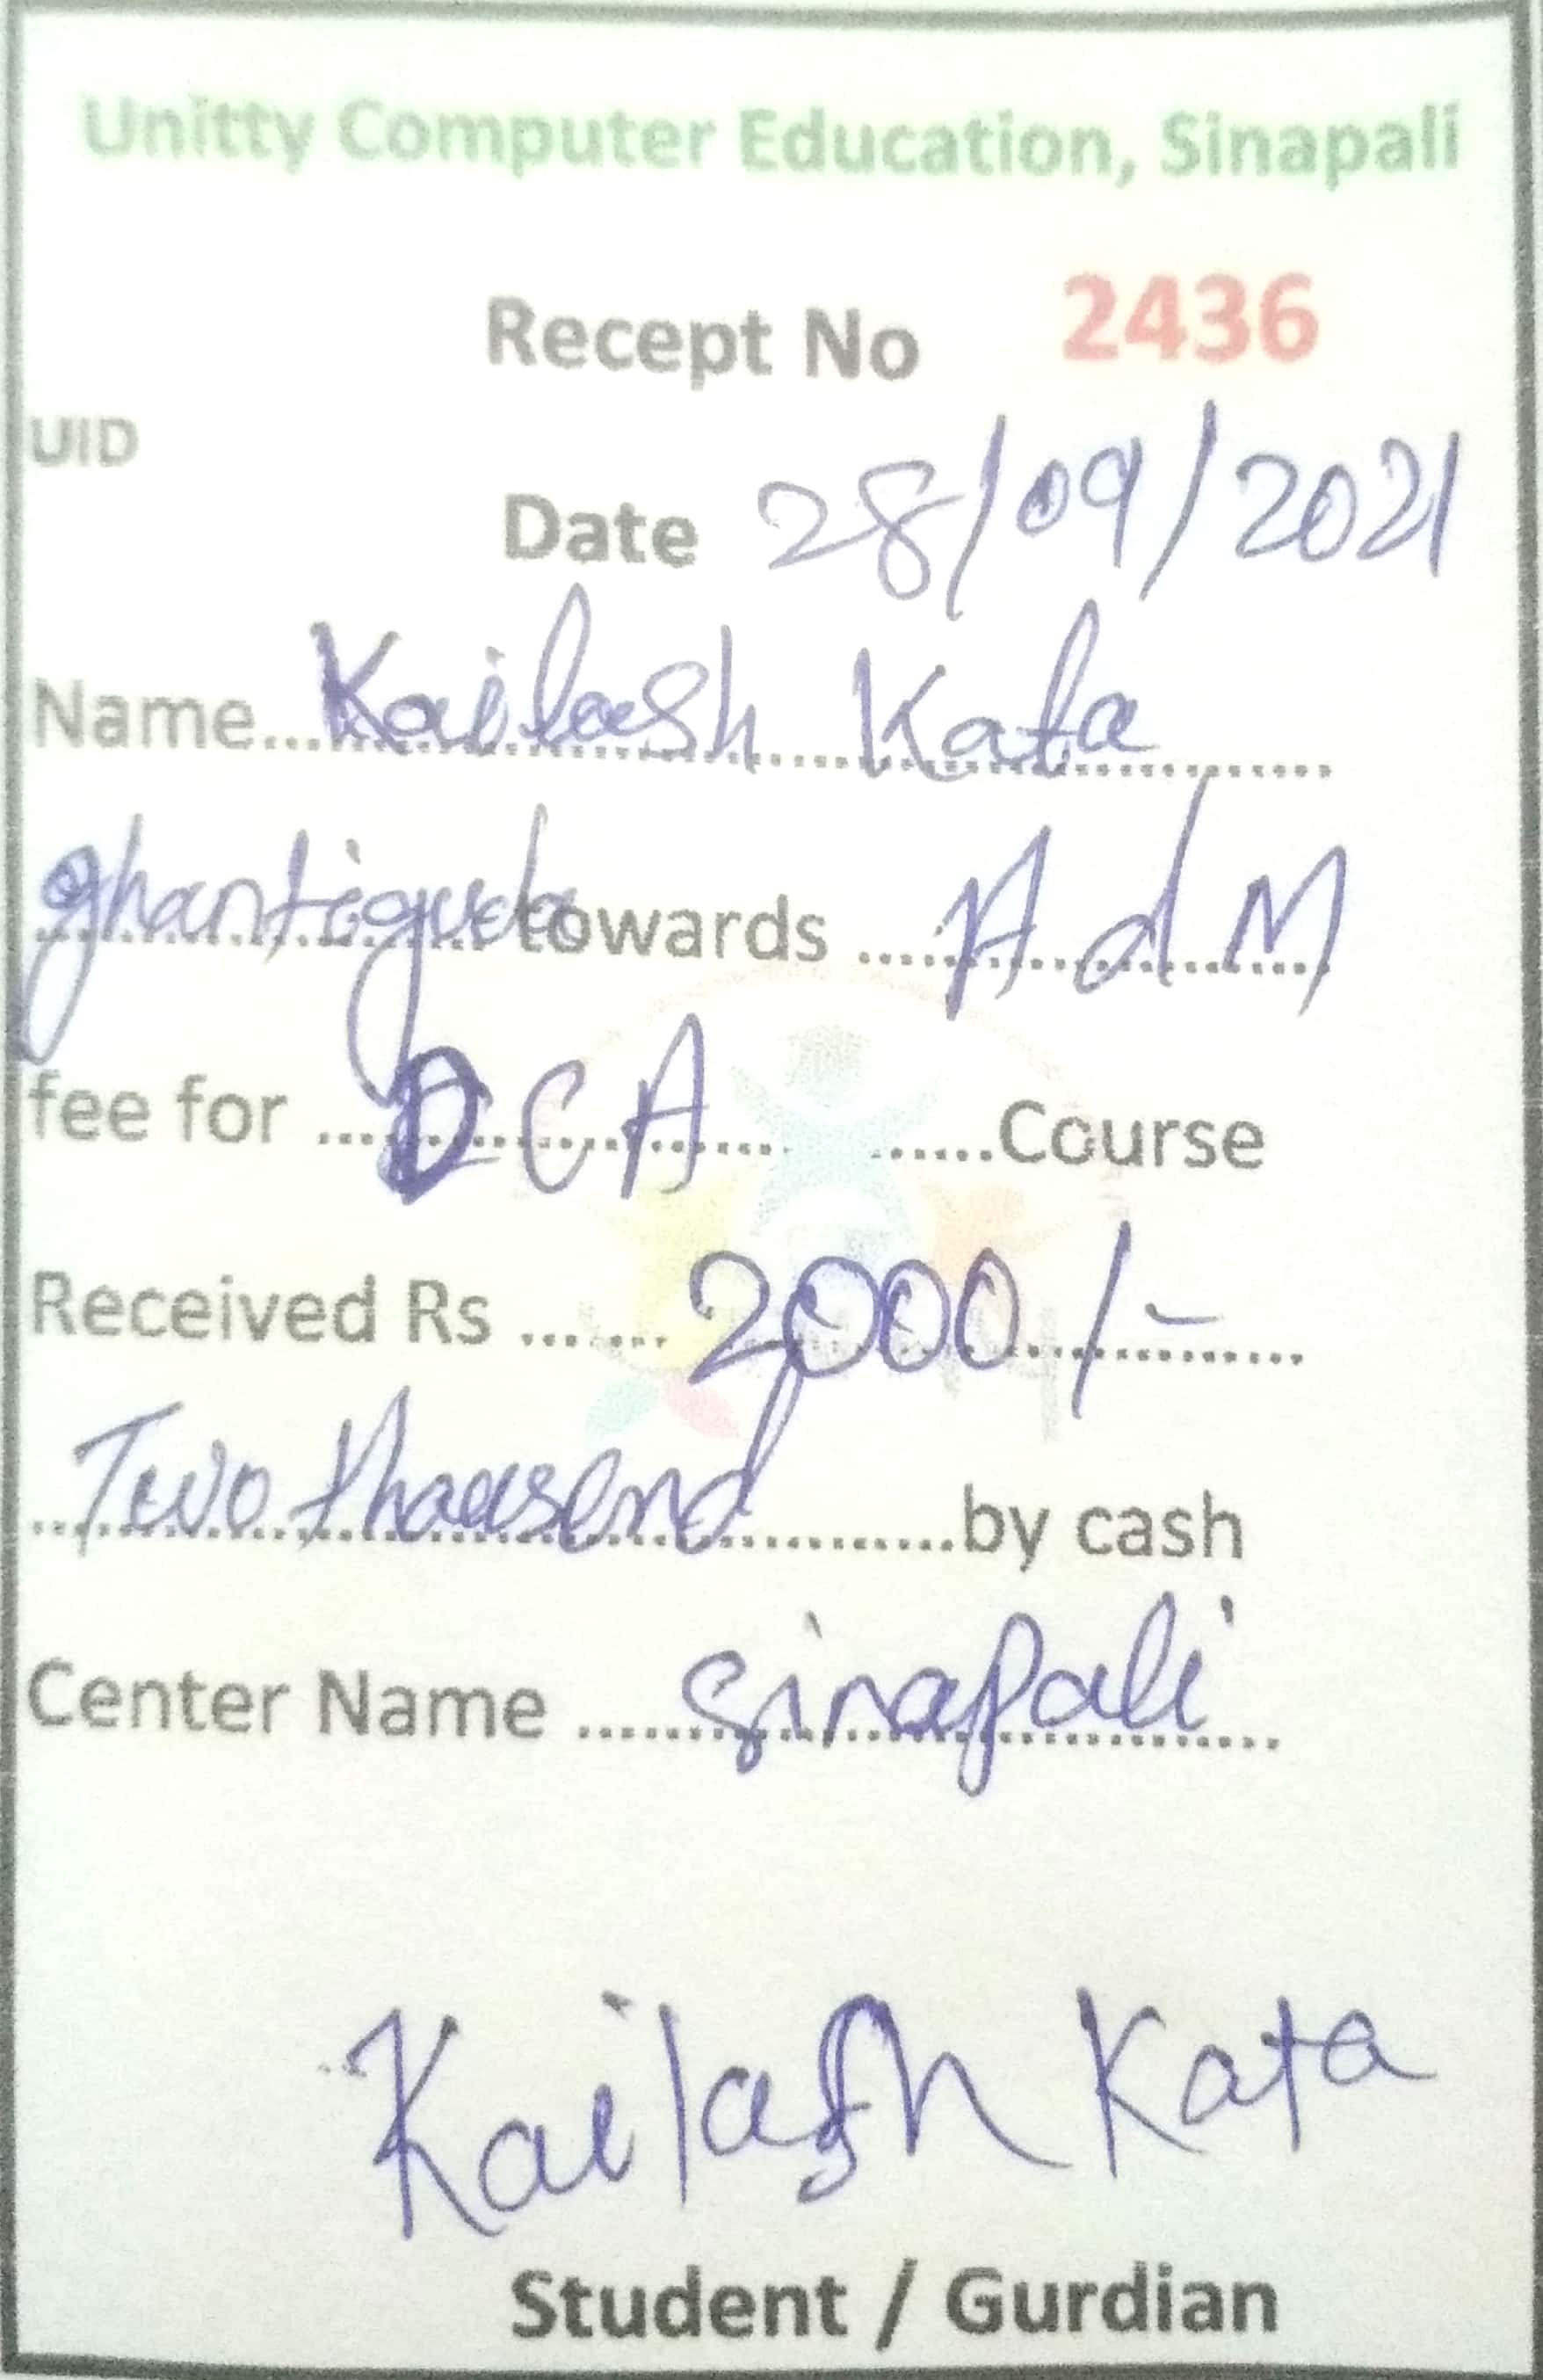 Unitty Computer Education, Sinapali
Recept No 2436
UID
Date 28/09/2021
Name Kailash Kata
ghantiguda towards AdM
fee for DCA Course
Received Rs 2000/-
Two thousend by cash
Center Name Sinapali
Kailash Kata
Student / Gurdian